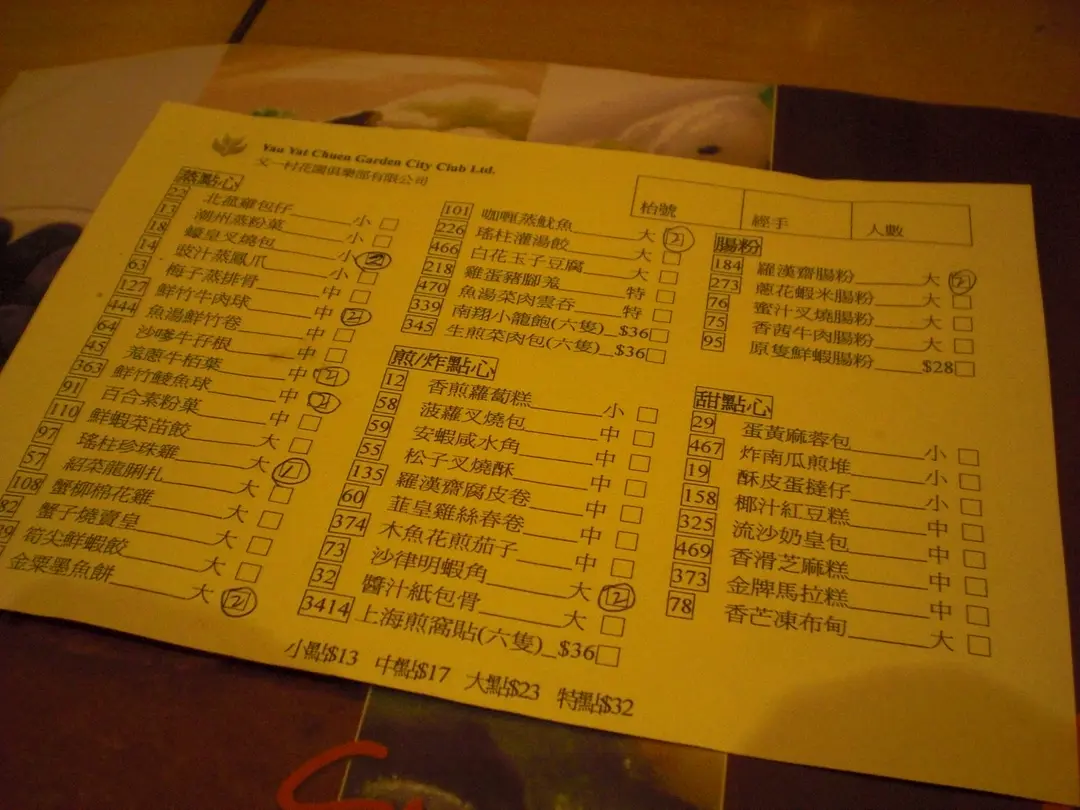 Yau Yat Chuen Garden City Club Ltd.
又一村花園俱樂部有限公司
枱號 經手 人數
蒸點心
22 北菰雞包仔 小
13 潮州蒸粉菓 小
18 蠔皇叉燒包 小
14 豉汁蒸鳳爪 小
63 梅子蒸排骨 中
127 鮮竹牛肉球 中
444 魚湯鮮竹卷 中
64 沙嗲牛孖根 中
45 牛栢葉 中
363 鮮竹鯪魚球 中
91 百合素粉菓 中
110 鮮蝦菜苗餃 大
97 瑤柱珍珠雞 大
57 紹菜龍脷扎 大
108 蟹柳棉花雞 大
82 蟹子燒賣皇 大
筍尖鮮蝦餃 大
金粟墨魚餅 大
101 咖喱蒸魷魚 大
226 瑤柱灌湯餃 大
466 白花玉子豆腐 大
218 雞蛋豬腳羌 特
470 魚湯菜肉雲吞 特
339 南翔小籠飽(六隻) $36
345 生煎菜肉包(六隻) $36
煎/炸點心
12 香煎蘿蔔糕 小
58 菠蘿叉燒包 中
59 安蝦咸水角 中
55 松子叉燒酥 中
135 羅漢齋腐皮卷 中
60 韮皇雞絲春卷 中
374 木魚花煎茄子 中
73 沙律明蝦角 大
32 醬汁紙包骨 大
3414 上海煎窩貼(六隻) $36
腸粉
184 羅漢齋腸粉 大
273 蔥花蝦米腸粉 大
76 蜜汁叉燒腸粉 大
75 香茜牛肉腸粉 大
95 原隻鮮蝦腸粉 $28
甜點心
29 蛋黃麻蓉包 小
467 炸南瓜煎堆 小
19 酥皮蛋撻仔 小
158 椰汁紅豆糕 中
325 流沙奶皇包 中
469 香滑芝麻糕 中
373 金牌馬拉糕 中
78 香芒凍布甸 大
小點$13 中點$17 大點$23 特點$32